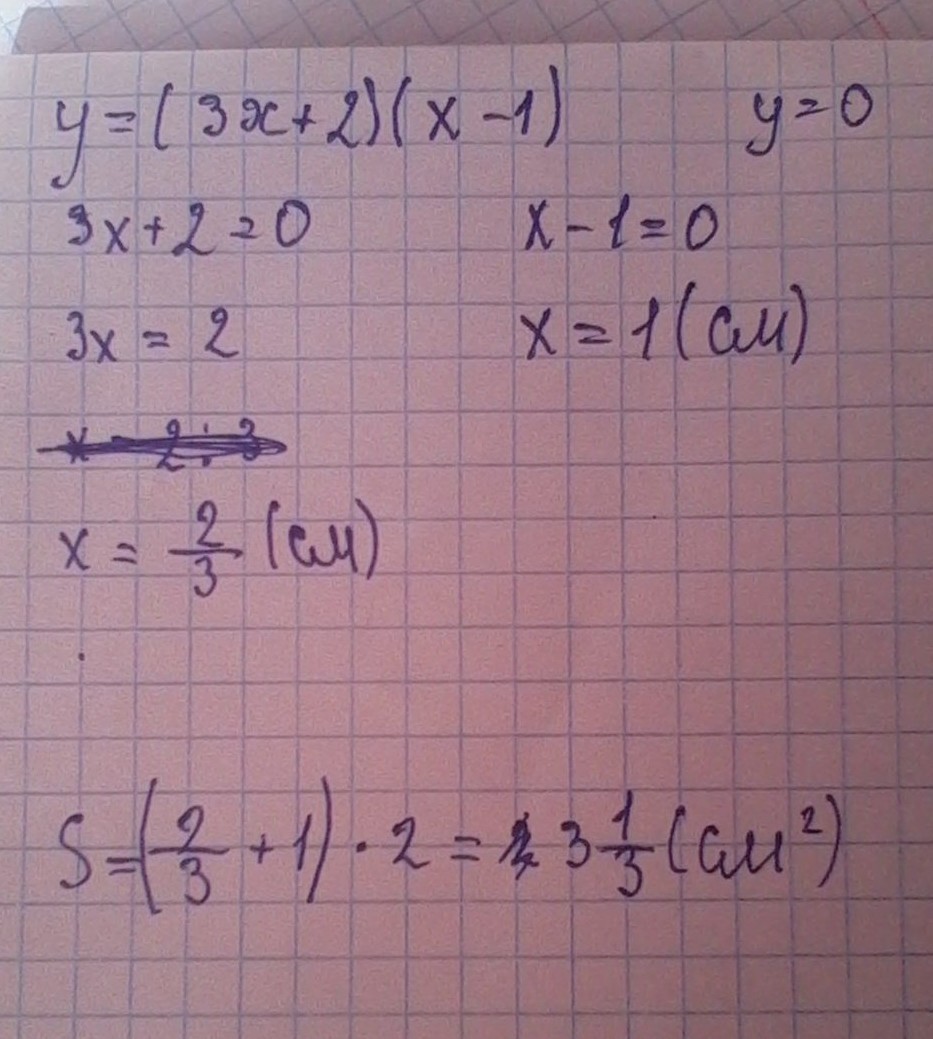 y = (3x+2)(x-1) y=0
3x+2=0 x-1=0
3x = 2 x = 1 (см)
x = 2/3 (см)
S=(2/3+1)·2 = 3 1/3 (см²)